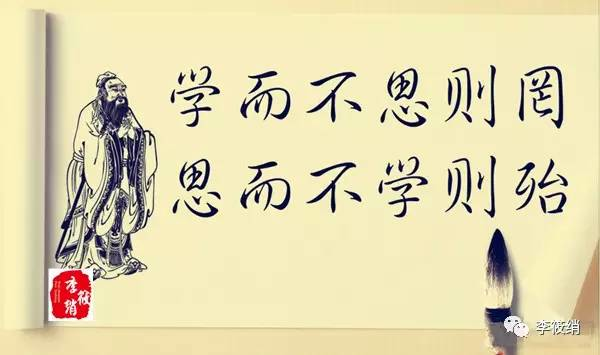 学而不思则罔
思而不学则殆
李筱绡
李筱绡